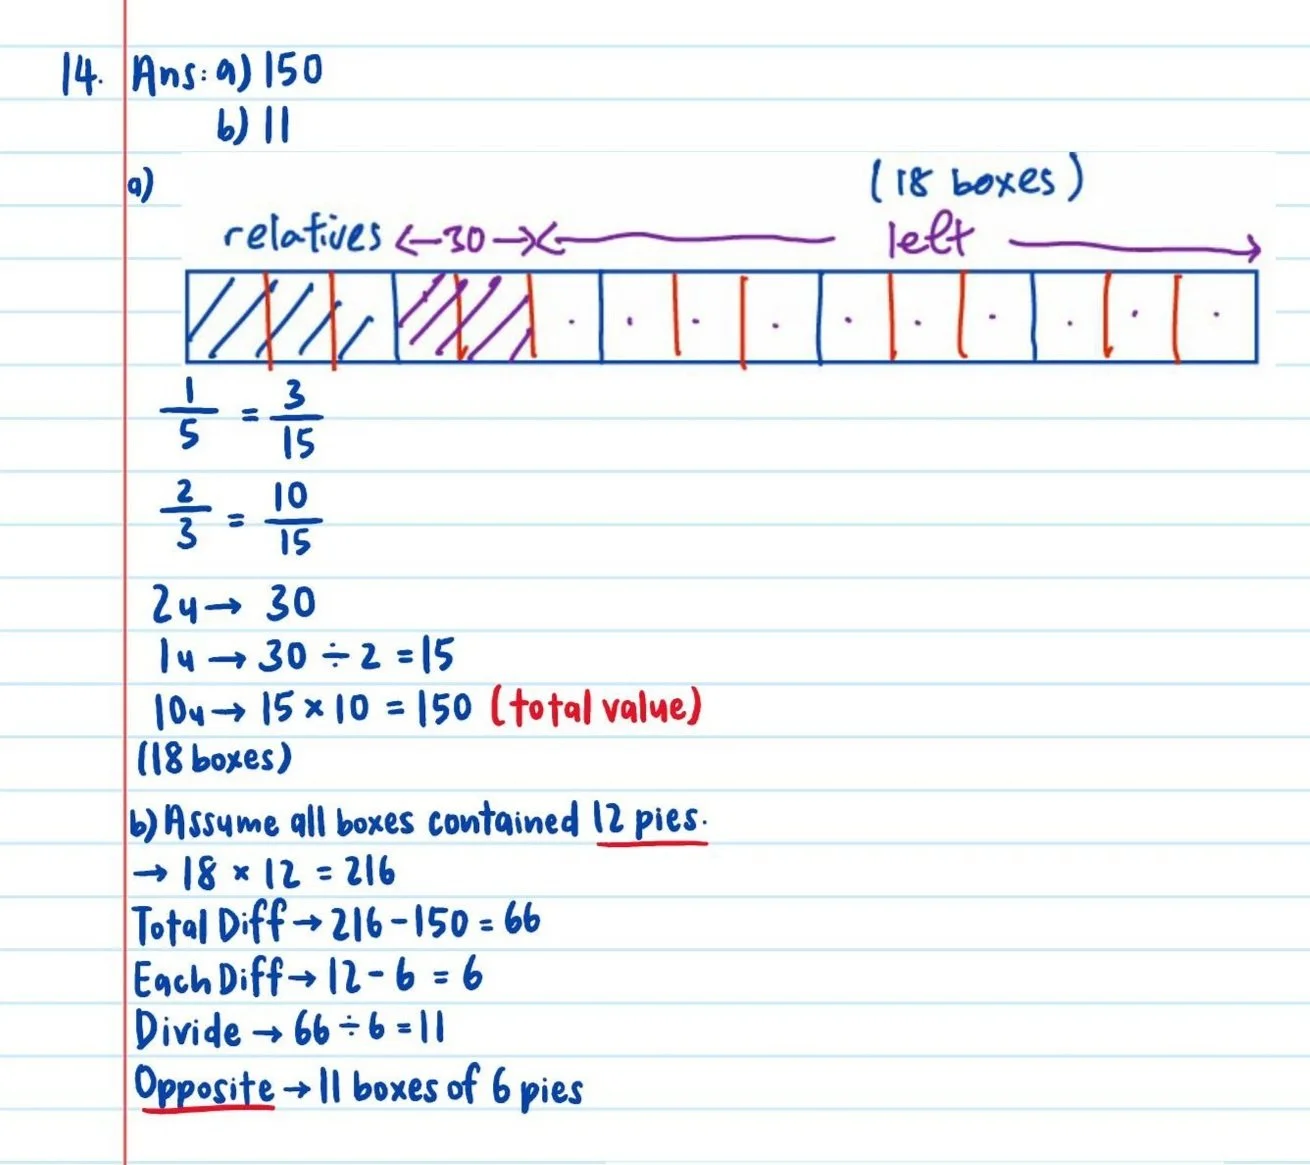 14. Ans: a) 150
b) 11
a)
(18 boxes)
relatives 30 left
1/5 = 3/15
2/3 = 10/15
2u → 30
1u → 30 ÷ 2 = 15
10u → 15 × 10 = 150 (total value)
(18 boxes)
b) Assume all boxes contained 12 pies.
→ 18 × 12 = 216
Total Diff → 216 - 150 = 66
Each Diff → 12 - 6 = 6
Divide → 66 ÷ 6 = 11
Opposite → 11 boxes of 6 pies